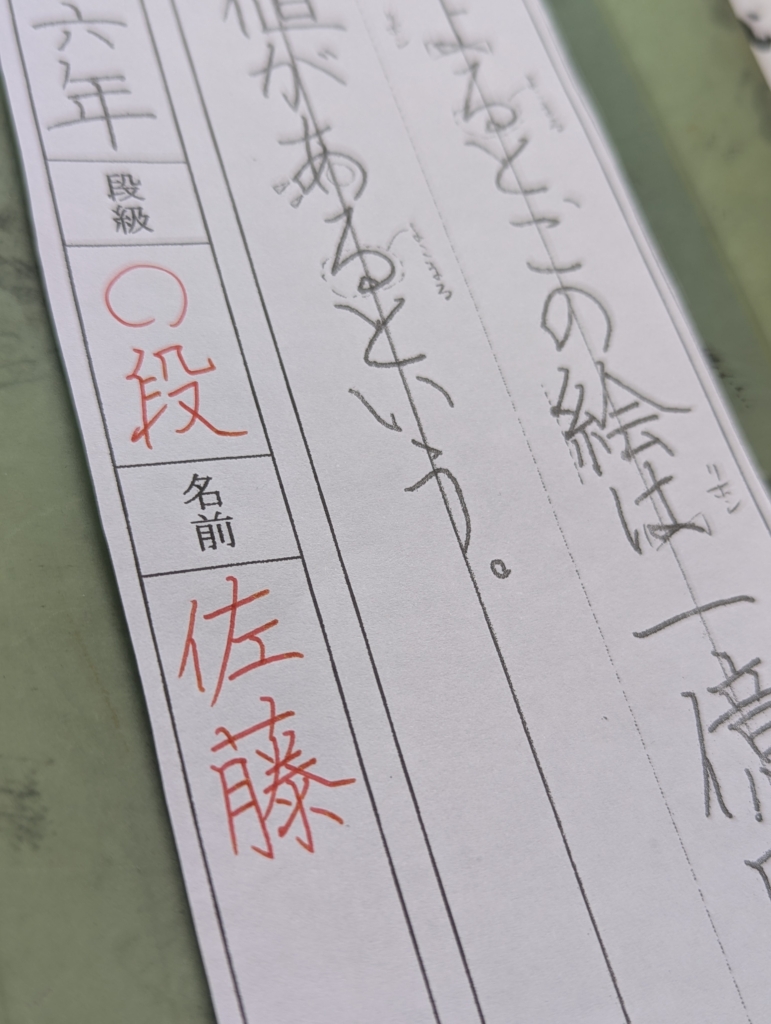 よると、この絵は一億
値があるという。
六年
段級
〇段
名前
佐藤